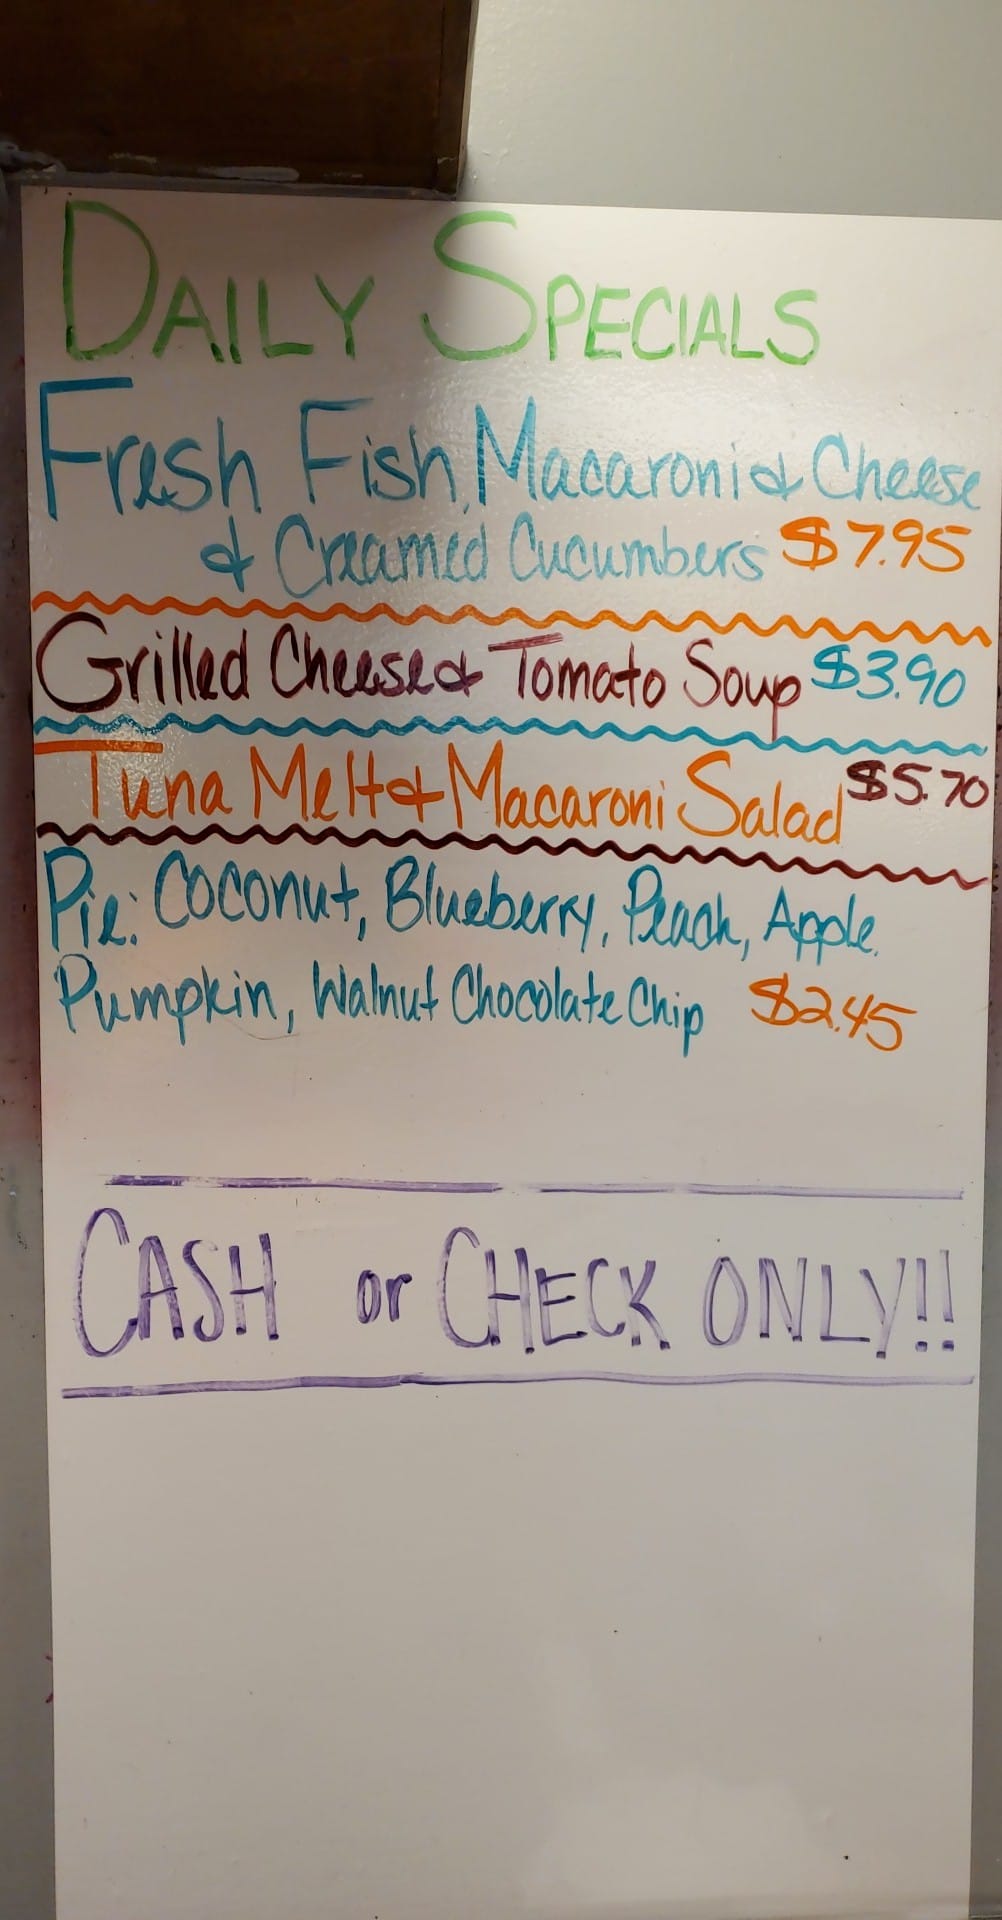 DAILY SPECIALS
Fresh Fish, Macaroni & Cheese
& Creamed Cucumbers $7.95
Grilled Cheese & Tomato Soup $3.90
Tuna Melt & Macaroni Salad $5.70
Pie: Coconut, Blueberry, Peach, Apple,
Pumpkin, Walnut Chocolate Chip $2.45
CASH or CHECK ONLY!!